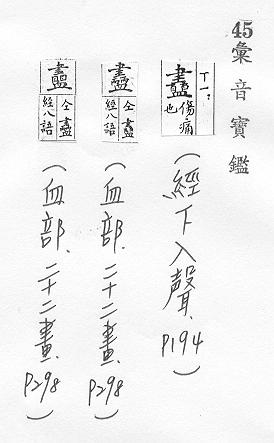 45彙音寶鑑
衋 傷痛也
(經下入聲. P194)
仝衋
經八語
(血部. 二十二畫. P298)
仝衋
經八語
(血部. 二十二畫. P298)